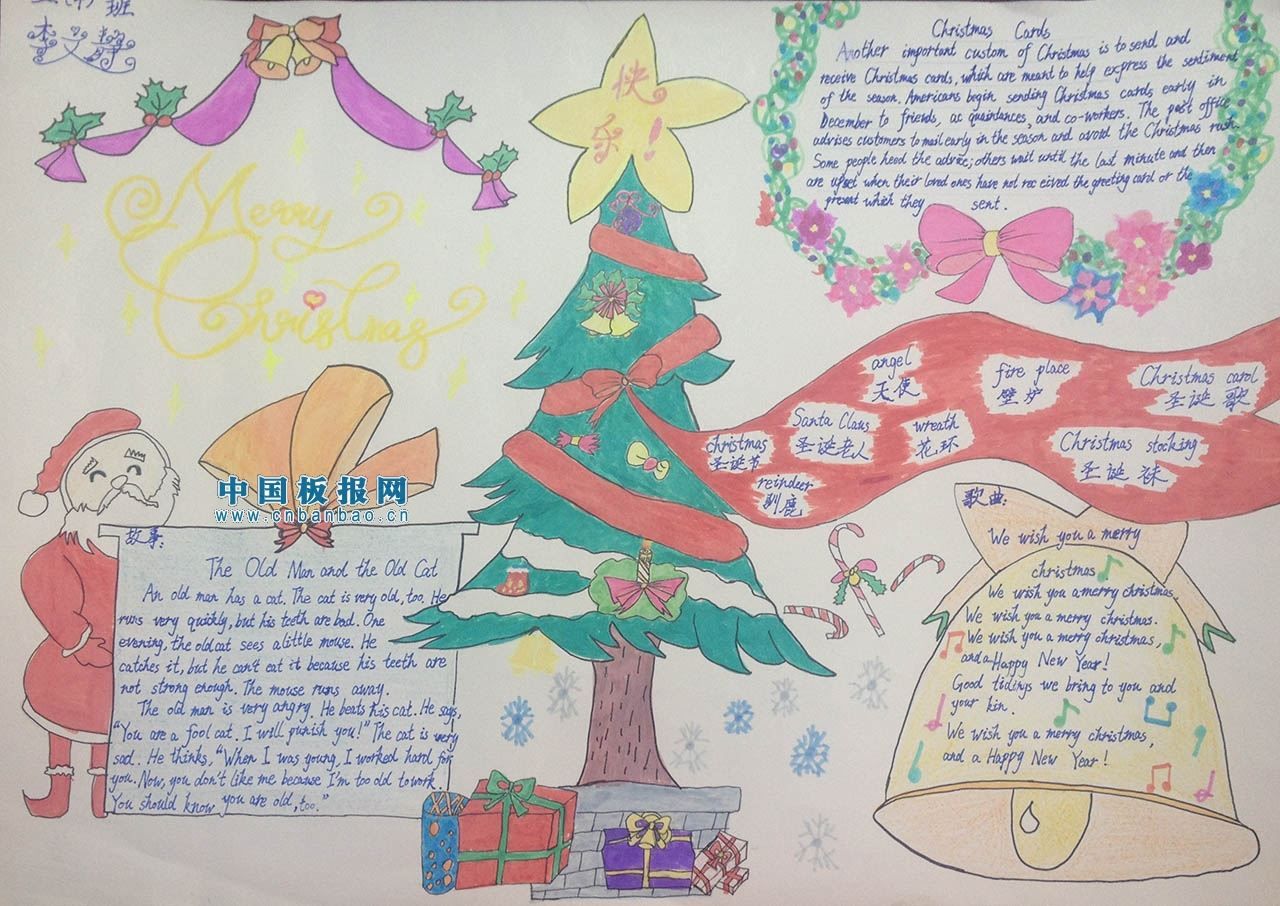 班
李文静
Merry
Christmas
快
乐!
Christmas Cards
Another important custom of Christmas is to send and
receive Christmas cards, which are meant to help express the sentiment
of the season. Americans begin sending Christmas cards early in
December to friends, ac quaintances, and co-workers. The post office
advises customers to mail early in the season and avoid the Christmas rush.
Some people heed the advice; others wait until the last minute and then
are upset when their loved ones have not rec eived the greeting card or the
present which they sent.
angel
天使
fire place
壁炉
Christmas carol
圣诞歌
Santa Claus
圣诞老人
wreath
花环
christmas
圣诞节
Christmas stocking
圣诞袜
reindeer
驯鹿
中国板报网
www.cnbanbao.cn
故事:
The Old Man and the Old Cat
An old man has a cat. The cat is very old, too. He
runs very quickly, but his teeth are bad. One
evening, the old cat sees a little mouse. He
catches it, but he can't eat it because his teeth are
not strong enough. The mouse runs away.
The old man is very angry. He beats his cat. He says,
"You are a fool cat. I will punish you!" The cat is very
sad. He thinks, "When I was young, I worked hard for
you. Now, you don't like me because I'm too old to work.
You should know you are old, too."
歌曲:
We wish you a merry
christmas
We wish you a merry christmas,
We wish you a merry christmas.
We wish you a merry christmas,
and a Happy New Year!
Good tidings we bring to you and
your kin.
We wish you a merry christmas,
and a Happy New Year!